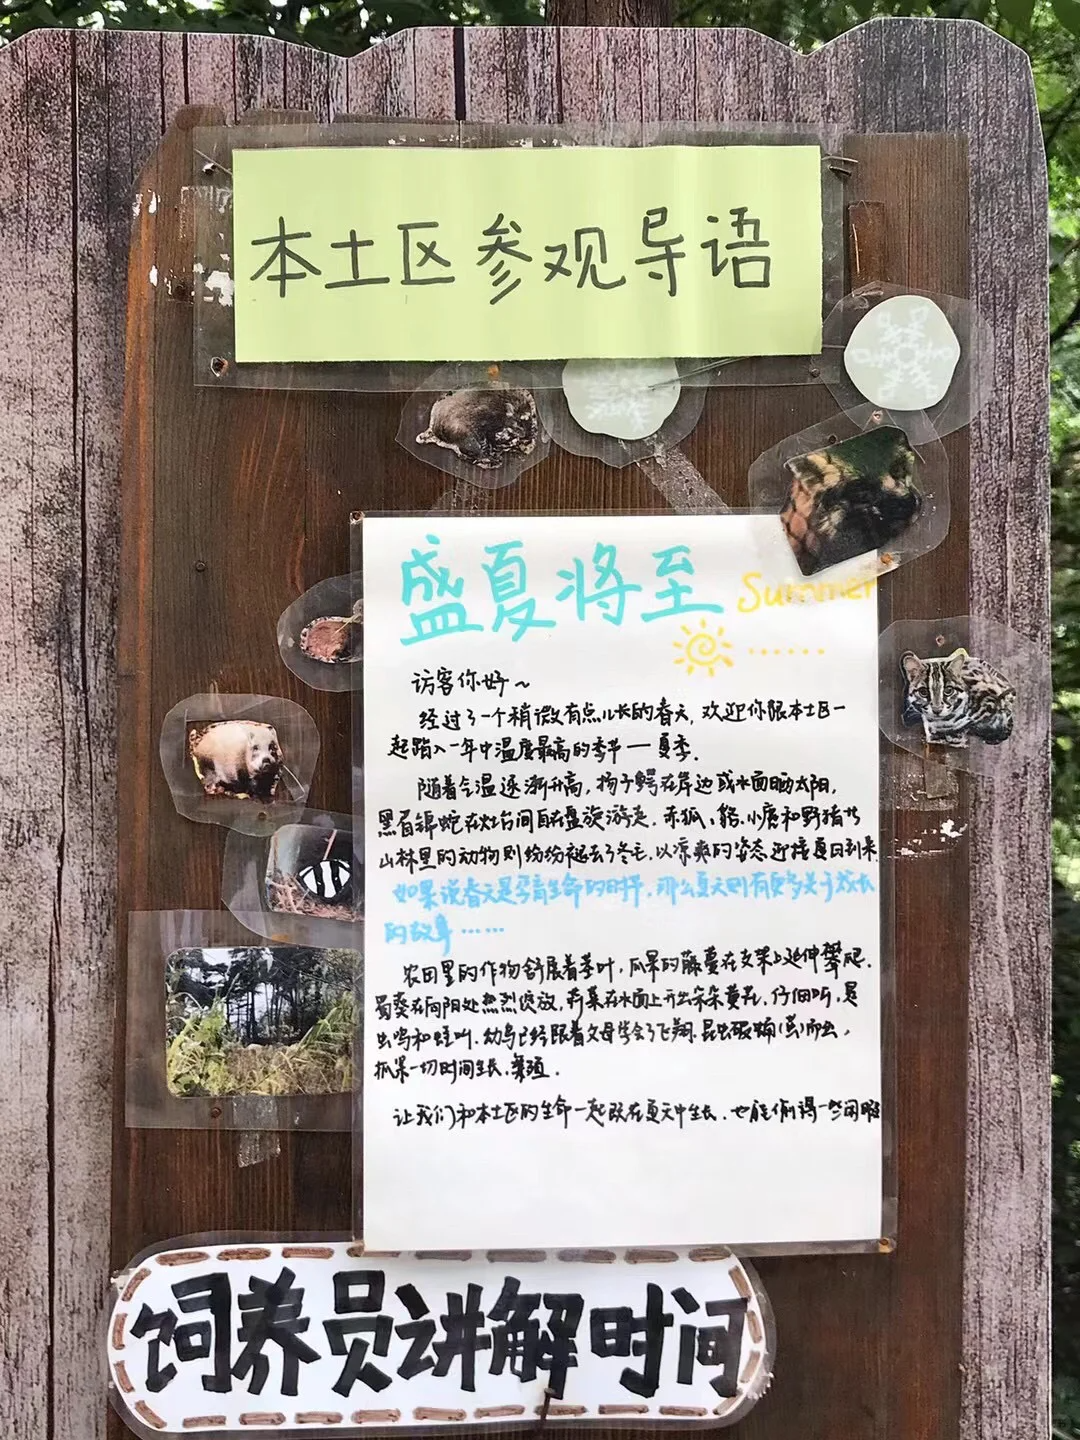 本土区参观导语
盛夏将至 Summer
访客你好~
经过了一个稍微有点儿长的春天,欢迎你跟本土区一
起踏入一年中温度最高的季节——夏季.
随着气温逐渐升高,扬子鳄在岸边或水面晒太阳,
黑眉锦蛇在灶台间自在盘旋游走.赤狐、貉、小麂和野猪等
山林里的动物则纷纷褪去了冬毛,以凉爽的姿态迎接夏日到来.
如果说春天是孕育生命的时节,那么夏天则有更多关于成长
的故事……
农田里的作物舒展着茎叶,瓜果的藤蔓在支架上延伸攀爬.
蜀葵在向阳处热烈绽放,荇菜在水面上开出朵朵黄花,仔细听,是
虫鸣和蛙叫.幼鸟已经跟着父母学会了飞翔.昆虫破蛹(茧)而出,
抓紧一切时间生长、繁殖.
让我们和本土区的生命一起在夏天中生长.也能偷得一些闲暇
饲养员讲解时间